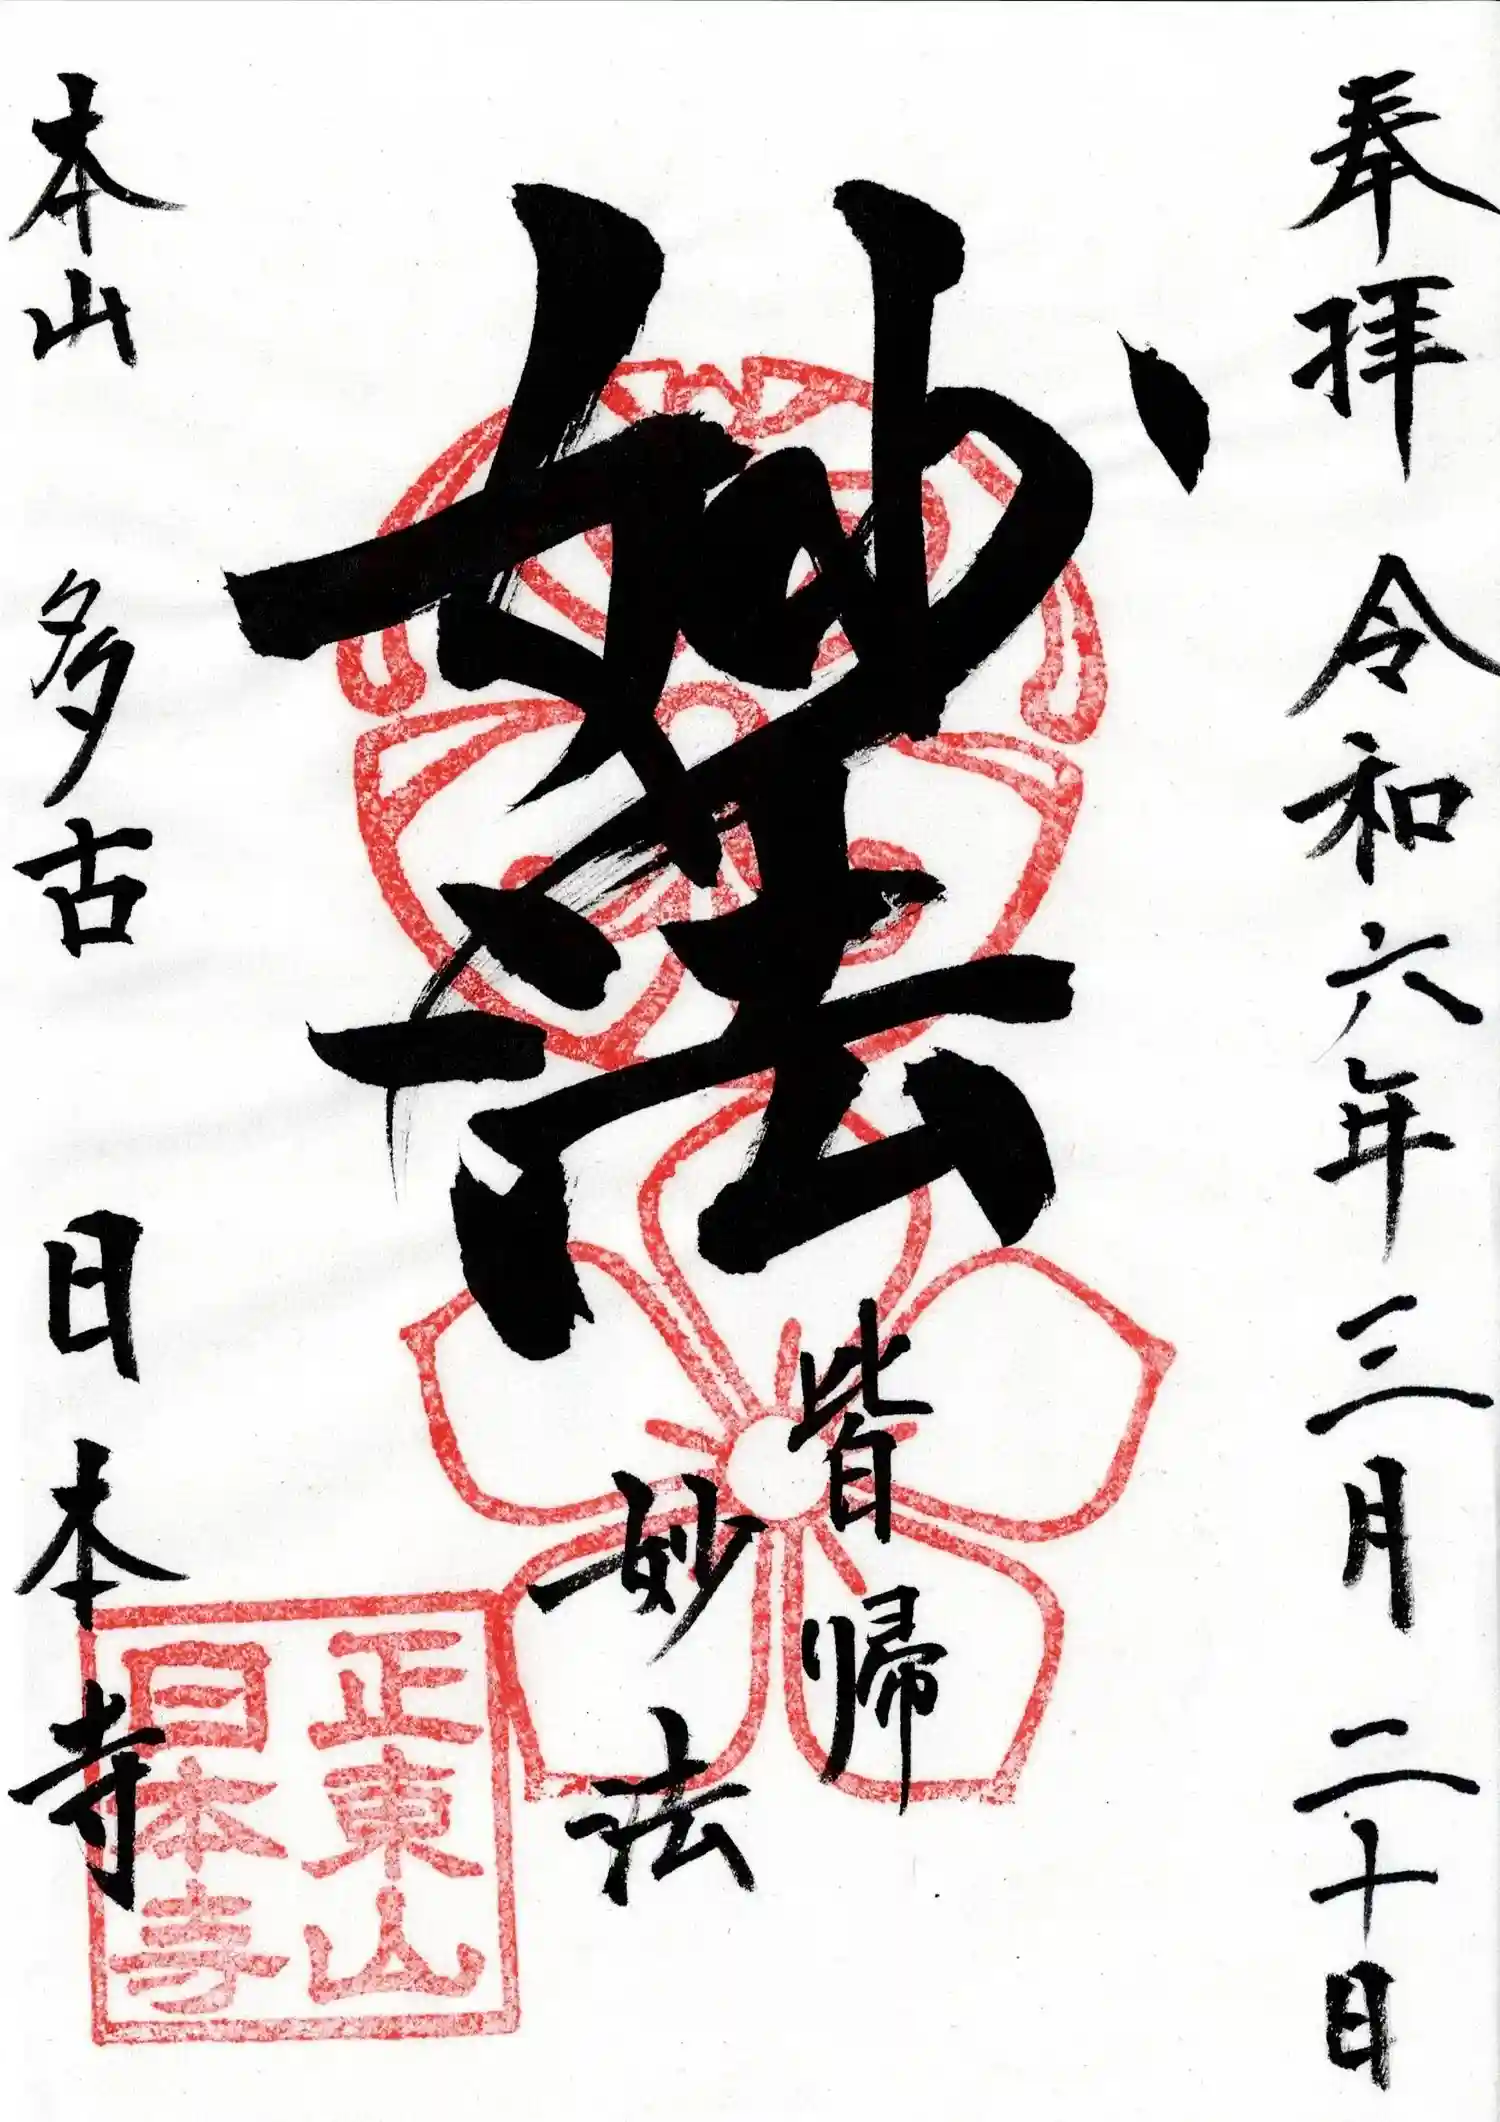 奉拝 令和六年三月二十日
妙法
皆帰
妙法
本山 多古 日本寺
正東山
日本寺